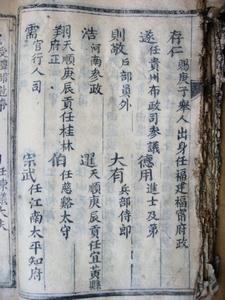 存仁 賜庚子舉人出身任福建福甯府政
遂 任貴州布政司參議 德用 進士及第
則敬 户部員外 大有 兵部侍郎
浩 河南參政 選 天順庚辰貢任宜黄縣
翔 天順庚辰貢任桂林府正 伯 任慈谿太守
霈 官行人司 宗武 任江南太平知府